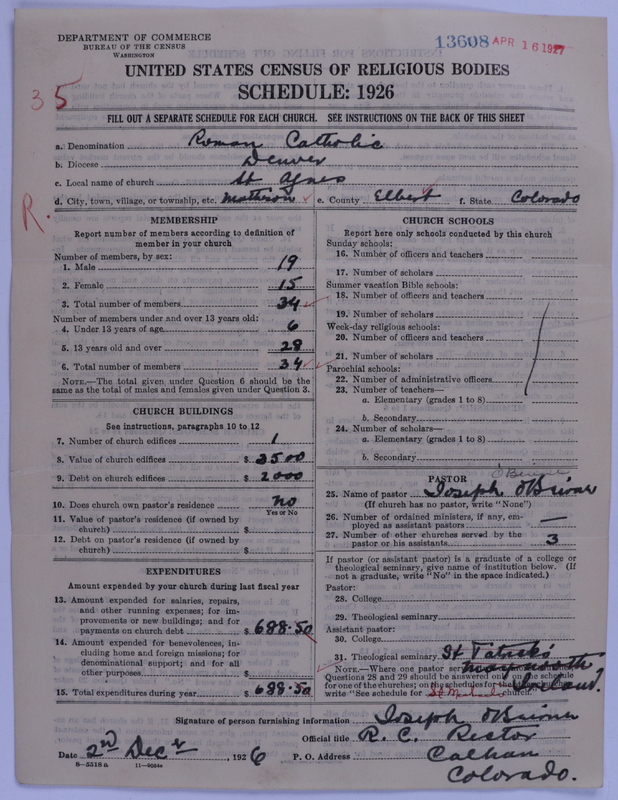 DEPARTMENT OF COMMERCE
BUREAU OF THE CENSUS
WASHINGTON
13608 APR 16 1927
UNITED STATES CENSUS OF RELIGIOUS BODIES
SCHEDULE: 1926
35
FILL OUT A SEPARATE SCHEDULE FOR EACH CHURCH. SEE INSTRUCTIONS ON THE BACK OF THIS SHEET
a. Denomination Roman Catholic
b. Diocese Denver
c. Local name of church St Agnes
d. City, town, village, or township, etc. Matheson e. County Elbert f. State Colorado
R.
MEMBERSHIP
Report number of members according to definition of
member in your church
Number of members, by sex:
1. Male 19
2. Female 15
3. Total number of members 34
Number of members under and over 13 years old:
4. Under 13 years of age 6
5. 13 years old and over 28
6. Total number of members 34
NOTE.—The total given under Question 6 should be the
same as the total of males and females given under Question 3.
CHURCH BUILDINGS
See instructions, paragraphs 10 to 12
7. Number of church edifices 1
8. Value of church edifices $3500
9. Debt on church edifices $2000
10. Does church own pastor's residence no
Yes or No
11. Value of pastor's residence (if owned by
church) $
12. Debt on pastor's residence (if owned by
church) $
EXPENDITURES
Amount expended by your church during last fiscal year
13. Amount expended for salaries, repairs,
and other running expenses; for im-
provements or new buildings; and for
payments on church debt $688.50
14. Amount expended for benevolences, in-
cluding home and foreign missions; for
denominational support; and for all
other purposes $
15. Total expenditures during year $688.50
CHURCH SCHOOLS
Report here only schools conducted by this church
Sunday schools:
16. Number of officers and teachers
17. Number of scholars
Summer vacation Bible schools:
18. Number of officers and teachers
19. Number of scholars
Week-day religious schools:
20. Number of officers and teachers
21. Number of scholars
Parochial schools:
22. Number of administrative officers
23. Number of teachers—
a. Elementary (grades 1 to 8)
b. Secondary
24. Number of scholars—
a. Elementary (grades 1 to 8)
b. Secondary
PASTOR
25. Name of pastor Joseph
(If church has no pastor, write "None")
26. Number of ordained ministers, if any, em-
ployed as assistant pastors —
27. Number of other churches served by the
pastor or his assistants 3
If pastor (or assistant pastor) is a graduate of a college or
theological seminary, give name of institution below. (If
not a graduate, write "No" in the space indicated.)
Pastor:
28. College
29. Theological seminary
Assistant pastor:
30. College
31. Theological seminary St Patricks
Maynooth
Ireland.
NOTE.—Where one pastor
Questions 28 and 29 should be answered only on
for one of the churches; on the schedules for the
that "See schedule for St Michaels church."
Signature of person furnishing information Joseph
Official title R. C. Rector
Date 2nd Dec r, 1926 P. O. Address Calhan
Colorado.
8—5518 a